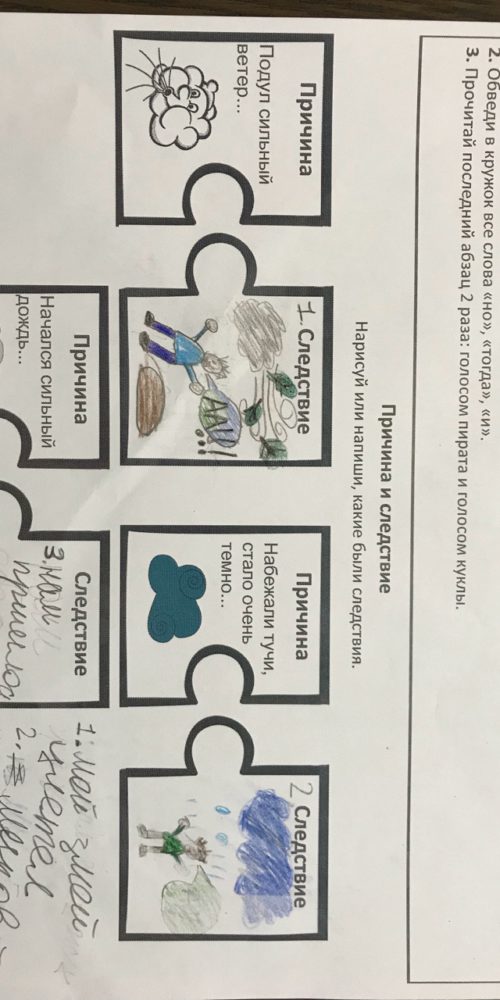 2. Обведи в кружок все слова «но», «тогда», «и».
3. Прочитай последний абзац 2 раза: голосом пирата и голосом куклы.
Причина и следствие
Нарисуй или напиши, какие были следствия.
Причина
Подул сильный
ветер...
1. Следствие
ААА!
Причина
Набежали тучи,
стало очень
темно...
2 Следствие
Причина
Начался сильный
дождь...
Следствие
3. нам
пришлось
1. мой змей
улетел
2.